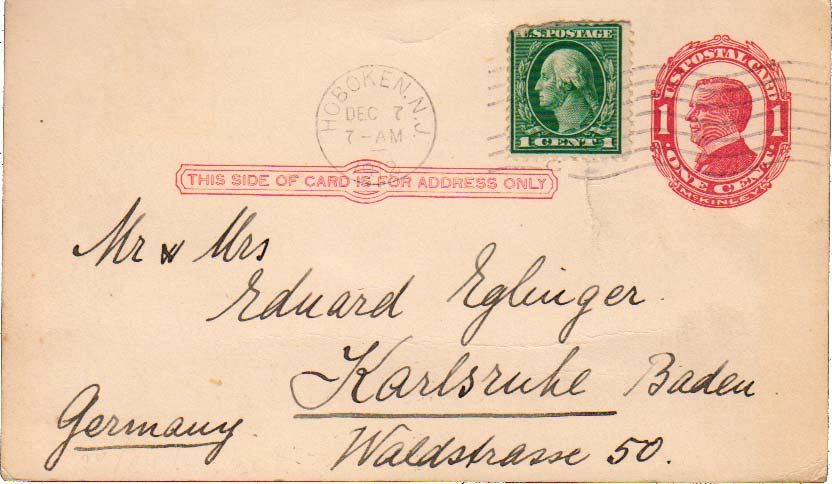 U.S. POSTAGE
1 CENT 1
U.S. POSTAL CARD
1 1
ONE CENT
McKINLEY
HOBOKEN, N.J.
DEC 7
7-AM
THIS SIDE OF CARD IS FOR ADDRESS ONLY
Mr & Mrs
Eduard Eglinger.
Karlsruhe Baden
Germany
Waldstrasse 50.